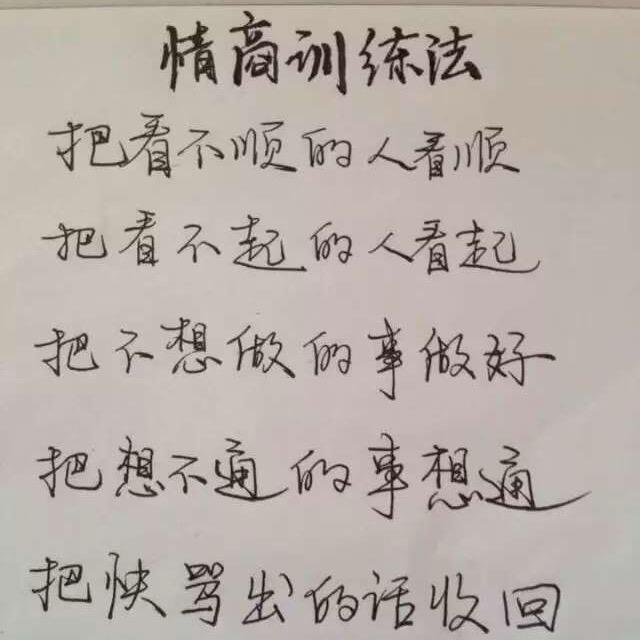 情商训练法
把看不顺的人看顺
把看不起的人看起
把不想做的事做好
把想不通的事想通
把快骂出的话收回